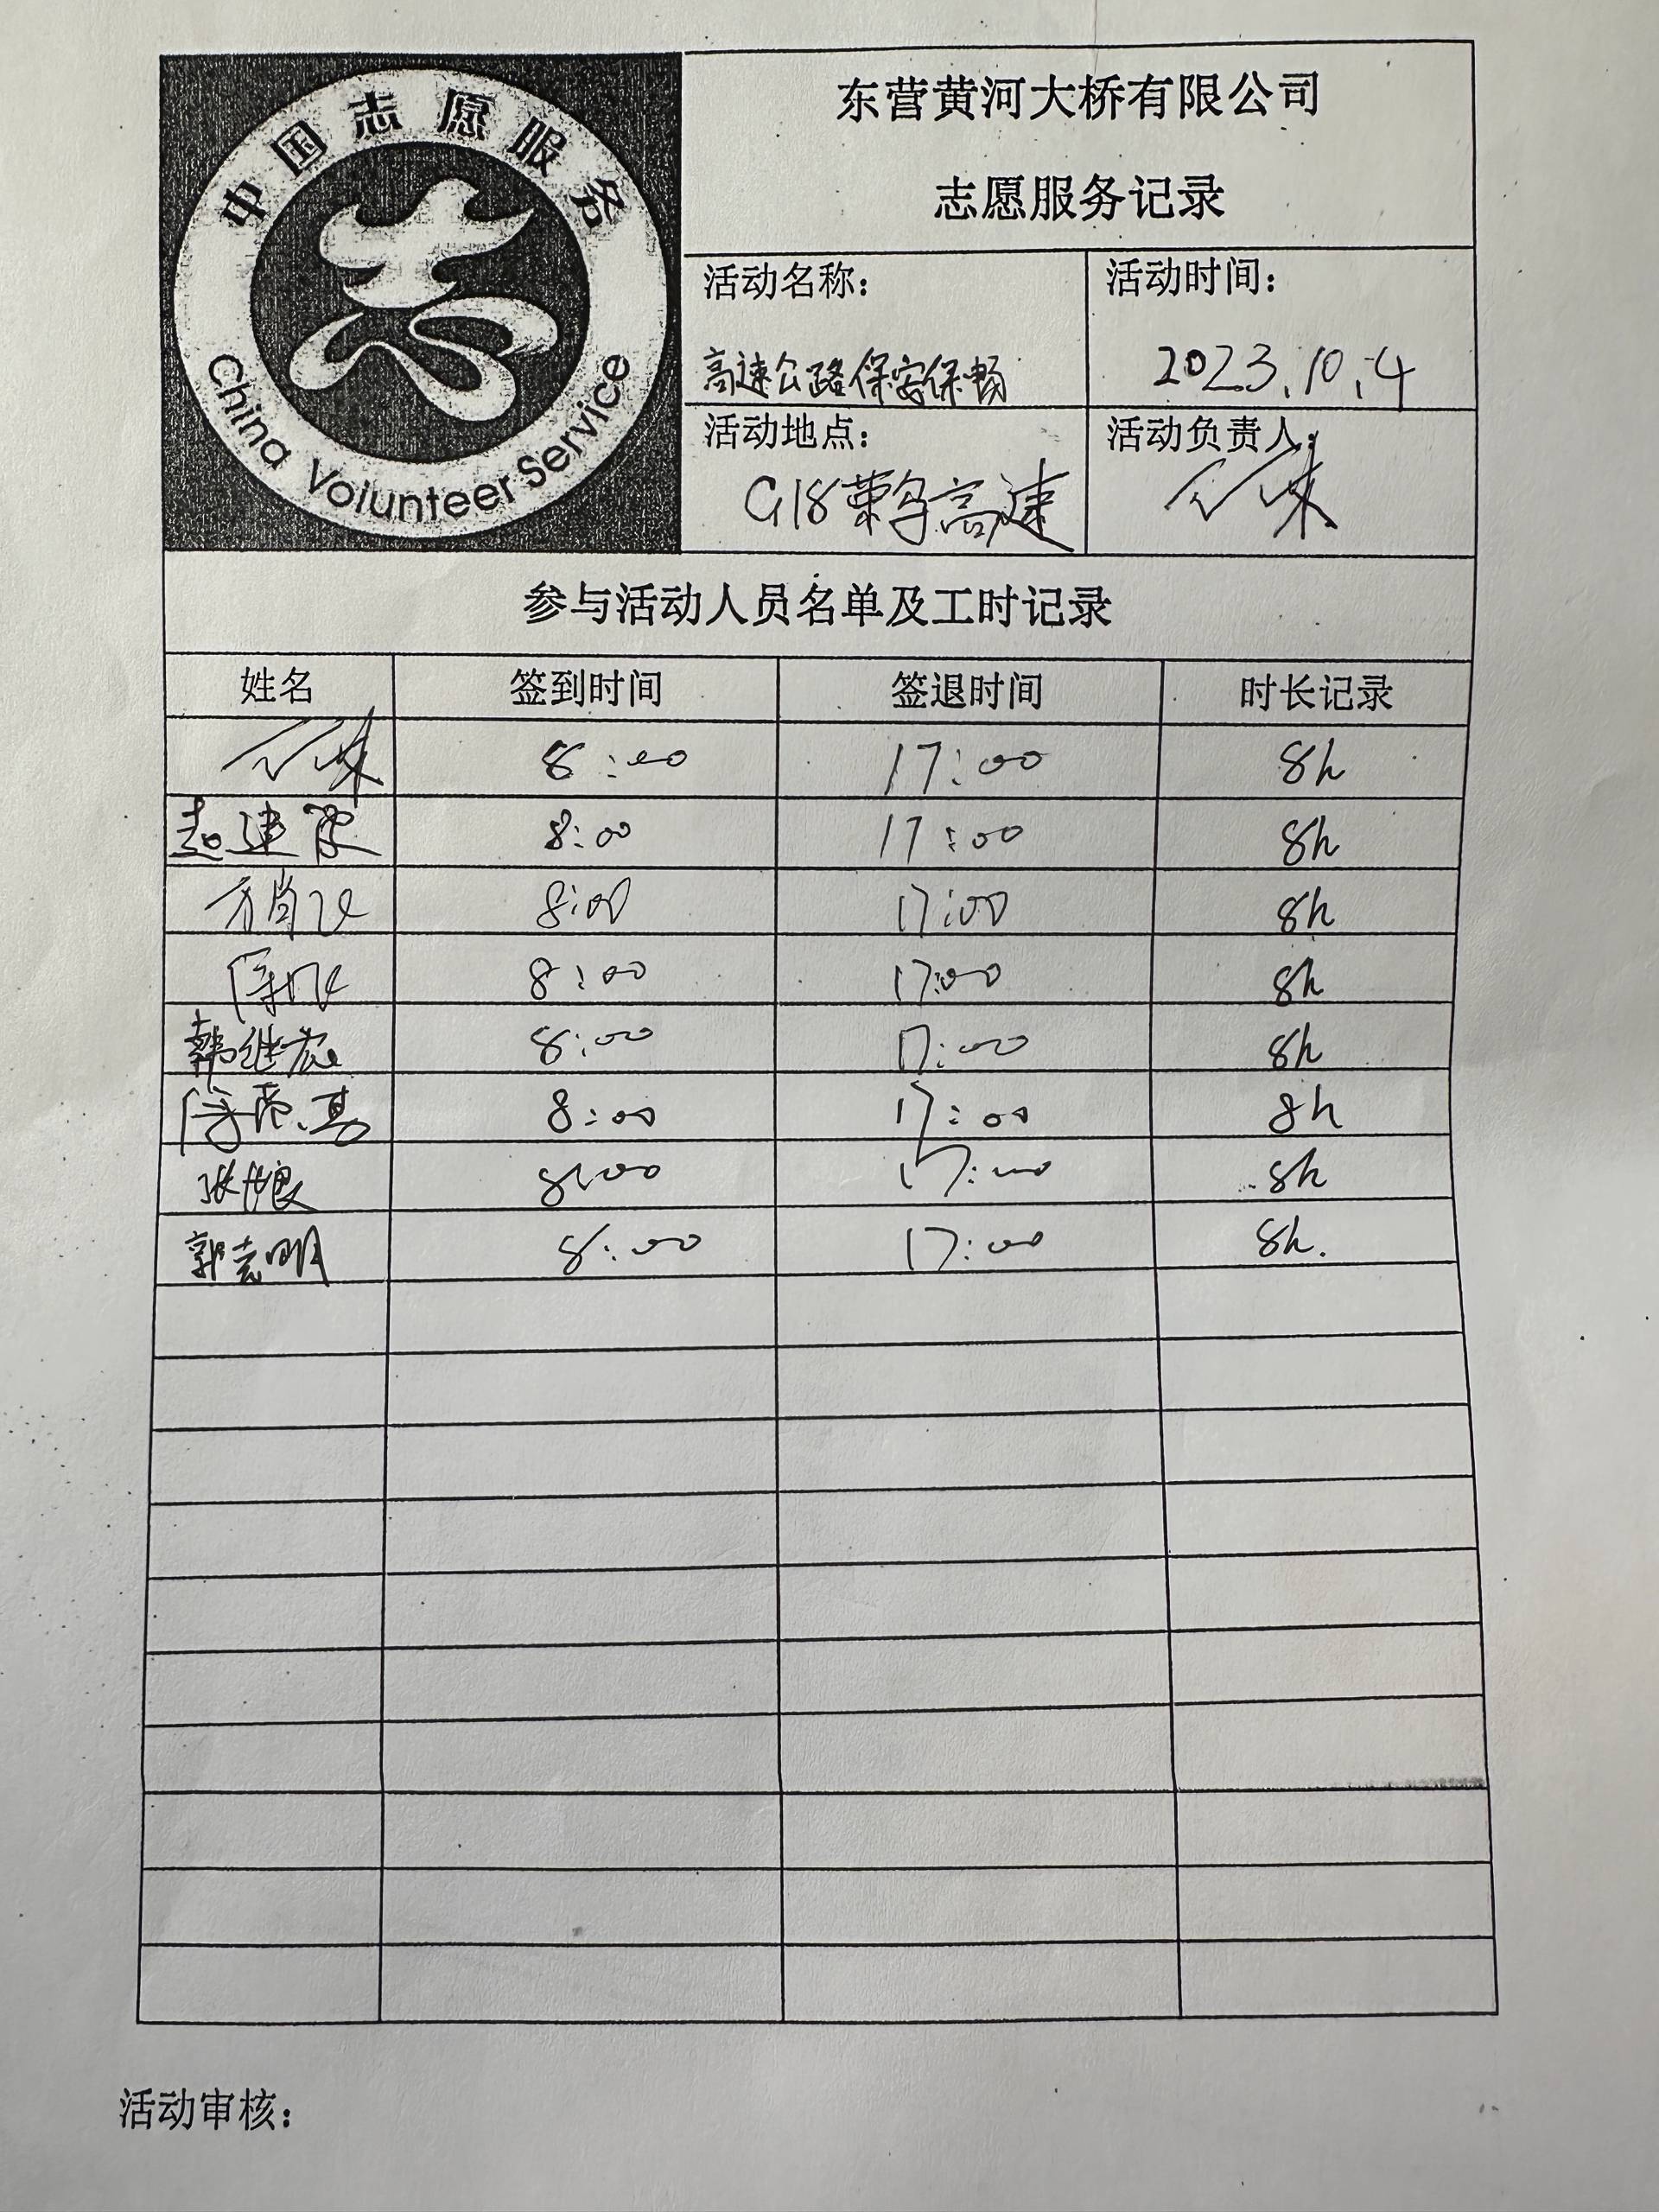 中国志愿服务
China Volunteer Service
东营黄河大桥有限公司
志愿服务记录
活动名称：
高速公路保安保畅
活动时间：
2023.10.4
活动地点：
G18荣乌高速
活动负责人：
参与活动人员名单及工时记录
姓名 签到时间 签退时间 时长记录
8:00 17:00 8h
赵建 8:00 17:00 8h
8:00 17:00 8h
8:00 17:00 8h
韩继宏 8:00 17:00 8h
8:00 17:00 8h
张 8:00 17:00 8h
郭志明 8:00 17:00 8h.
活动审核：